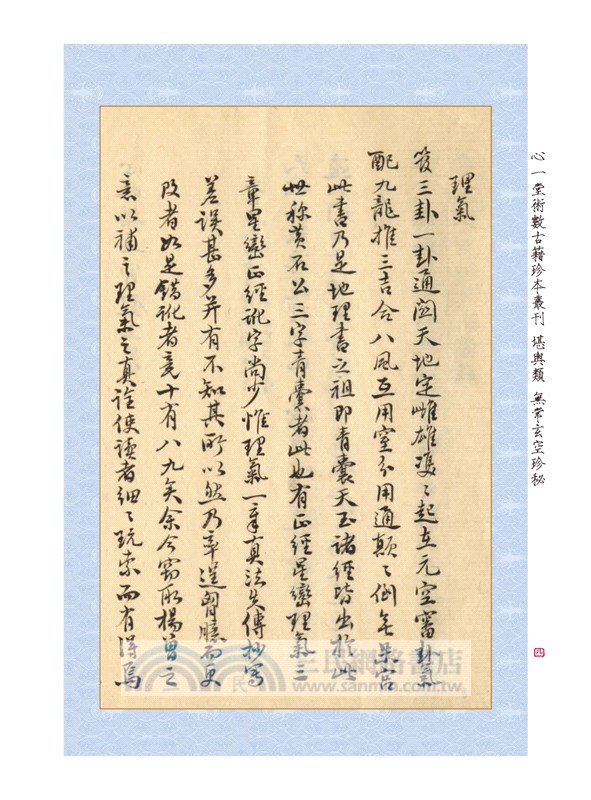 理氣
發三卦一卦通闔天地定雌雄雙〻起在元空審卦氣
配九龍推三吉合八風互用室分用通顛〻倒無差宮
此書乃是地理書之祖即青囊天玉諸經皆出於此
世称黃石公三字青囊者此也有正經星巒理氣三
章星巒正經訛字尚少惟理氣一章真法失傳抄寫
差誤甚多并有不知其所以然乃率逞胸臆而更
改者如是錯訛者竟十有八九矣余今竊取楊曾之
意以補之理氣之真詮使讀者細〻玩索而有得焉
心一堂術數古籍珍本叢刊 堪輿類 無常玄空珍秘
四
三民網路書店
www.sanmin.com.tw